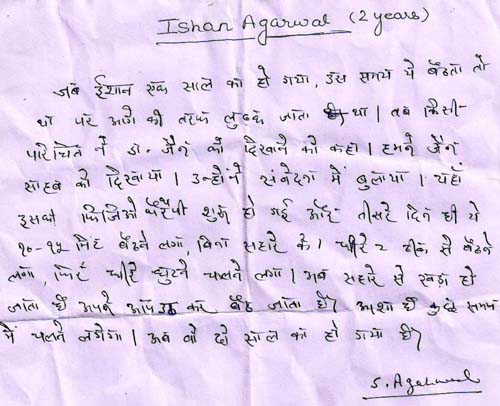 Ishan Agarwal (2 years)
जब ईशान एक साल का हो गया, उस समय ये बैठता तो
था पर आगे की तरफ लुढक जाता था। तब किसी
परिचित ने डा॰ जैन को दिखाने को कहा। हमने जैन
साहब को दिखाया। उन्होंने संवेदना में बुलाया। यहाँ
इसकी फिजियोथैरेपी शुरू हो गई और तीसरे दिन ही ये
१०-१५ मिनट बैठने लगा, बिना सहारे के। धीरे २ ठीक से बैठने
लगा, फिर धीरे घुटने चलने लगा। अब सहारे से खड़ा हो
जाता है अपने आप उठ कर बैठ जाता है। आशा है कुछ समय
में चलने लगेगा। अब वो दो साल का हो गया है।
S. Agarwal